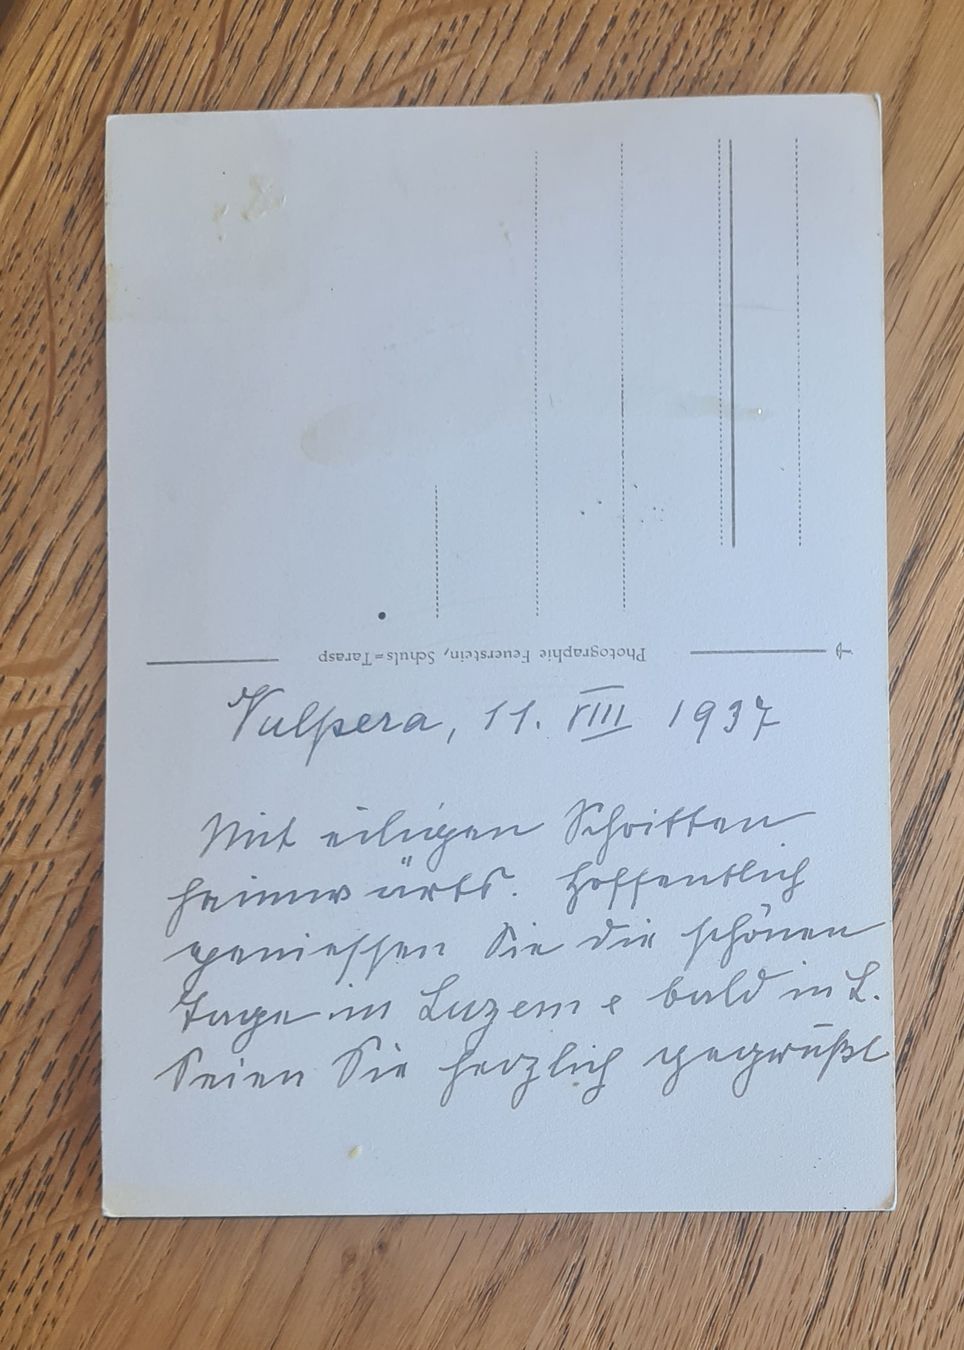 Photographie Feuerstein, Schuls=Tarasp
Vulpera, 11. VIII 1937
Mit eiligen Schritten
heimwärts. Hoffentlich
geniessen Sie die schönen
Tage in Luzern e bald in L.
Seien Sie herzlich gegrüßt